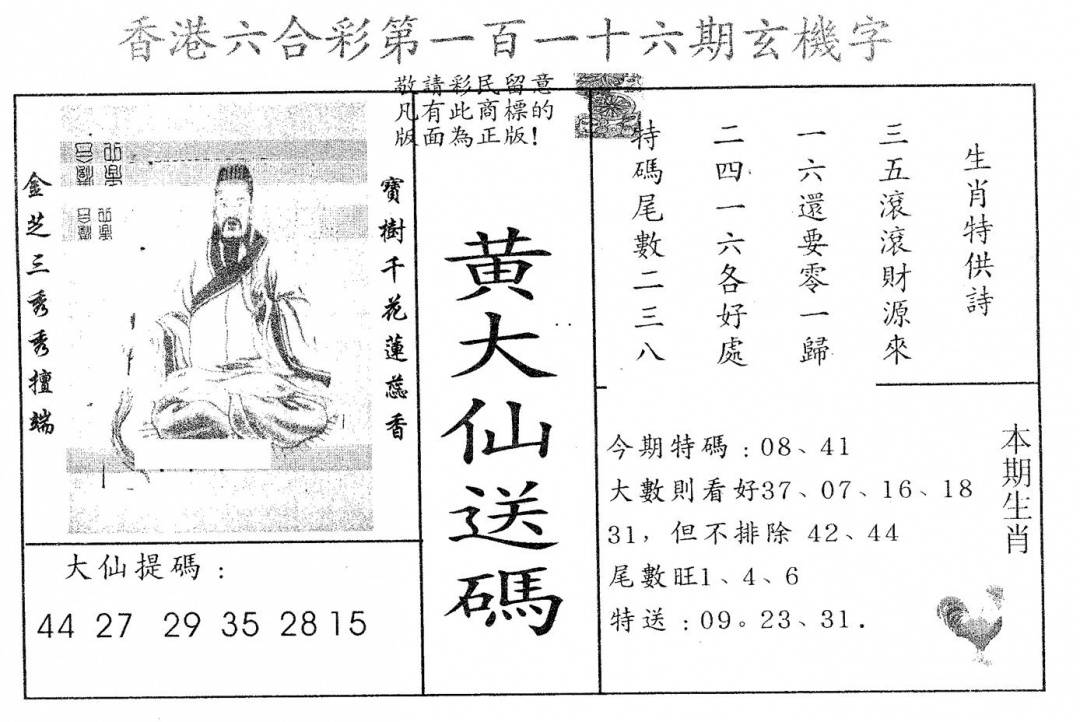 香港六合彩第一百一十六期玄機字
敬請彩民留意
凡有此商標的
版面為正版！
生肖特供詩
三五滾滾財源來
一六還要零一歸
二四一六各好處
特碼尾數二三八
寶樹千花蓮蕊香
金芝三秀秀擅端
黃大仙送碼
大仙提碼：
44 27 29 35 28 15
本期生肖
今期特碼：08、41
大數則看好37、07、16、18
31，但不排除 42、44
尾數旺1、4、6
特送：09。23、31.